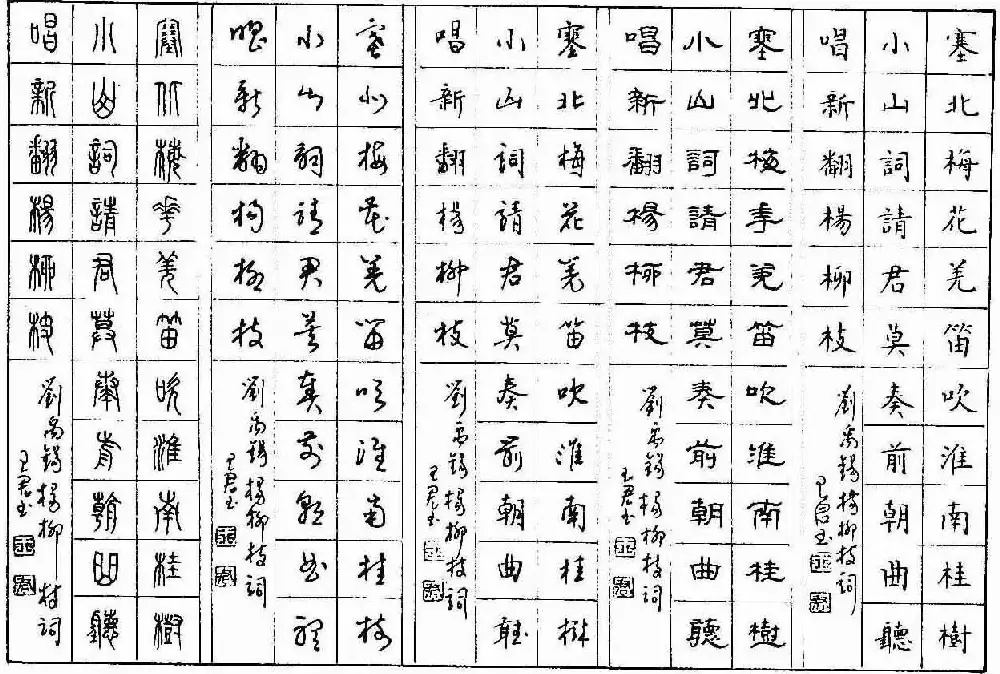 塞北梅花羌笛吹淮南桂樹
小山詞請君莫奏前朝曲聽
唱新翻楊柳枝
劉禹錫楊柳枝詞
塞北梅花羌笛吹淮南桂樹
小山詞請君莫奏前朝曲聽
唱新翻楊柳枝
劉禹錫楊柳枝詞
塞北梅花羌笛吹淮南桂樹
小山詞請君莫奏前朝曲聽
唱新翻楊柳枝
劉禹錫楊柳枝詞
塞北梅花羌笛吹淮南桂樹
小山詞請君莫奏前朝曲聽
唱新翻楊柳枝
劉禹錫楊柳枝詞
塞北梅花羌笛吹淮南桂樹
小山詞請君莫奏前朝曲聽
唱新翻楊柳枝
劉禹錫楊柳枝詞